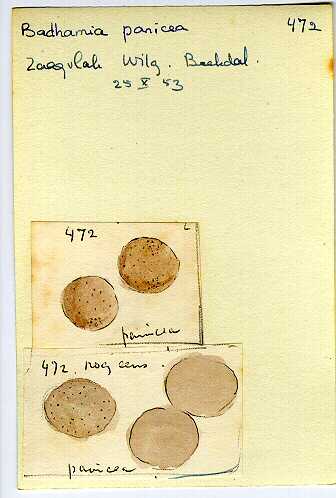 Badhamia panicea 472
Zaagvlak Wilg. Beekdal.
25 X 53
472
panicea
472.
panicea